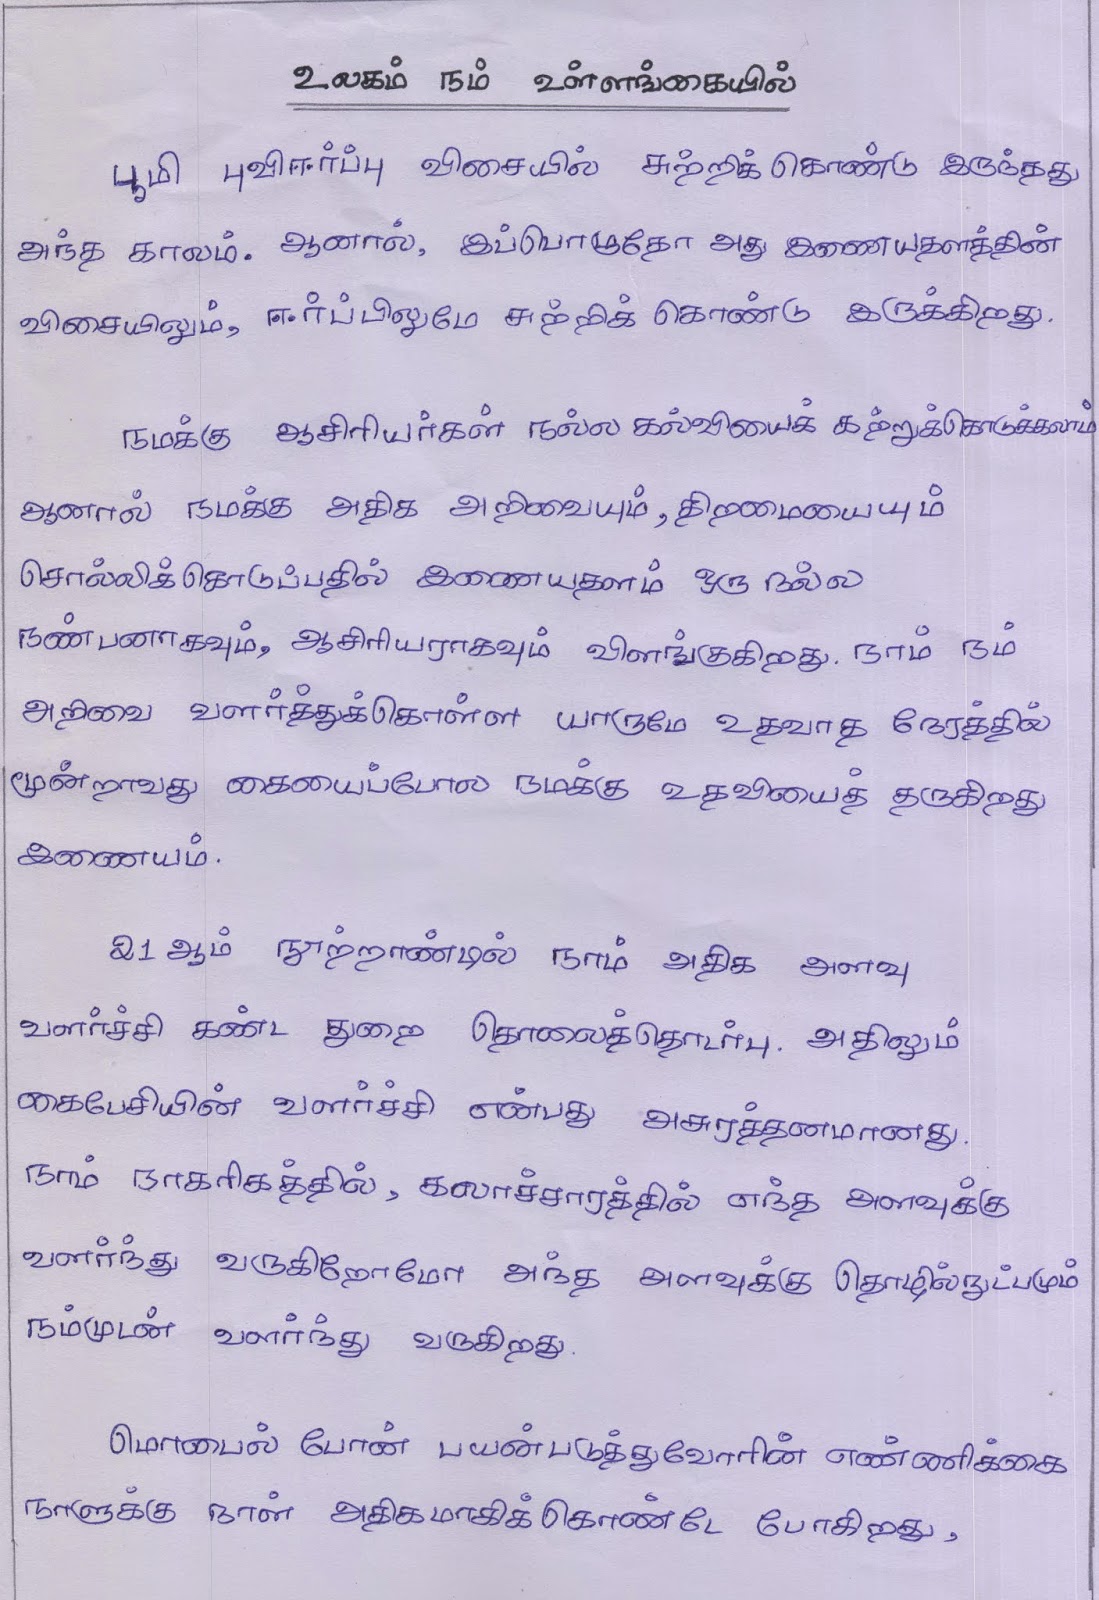 உலகம் நம் உள்ளங்கையில்
பூமி புவிஈர்ப்பு விசையில் சுற்றிக் கொண்டு இருந்தது
அந்த காலம். ஆனால், இப்பொழுதோ அது இணையதளத்தின்
விசையிலும், ஈர்ப்பிலுமே சுற்றிக் கொண்டு இருக்கிறது.
நமக்கு ஆசிரியர்கள் நல்ல கல்வியைக் கற்றுக்கொடுக்கலாம்
ஆனால் நமக்கு அதிக அறிவையும், திறமையையும்
சொல்லிக்கொடுப்பதில் இணையதளம் ஒரு நல்ல
நண்பனாகவும், ஆசிரியராகவும் விளங்குகிறது. நாம் நம்
அறிவை வளர்த்துக்கொள்ள யாருமே உதவாத நேரத்தில்
மூன்றாவது கையைப்போல நமக்கு உதவியைத் தருகிறது
இணையம்.
21 ஆம் நூற்றாண்டில் நாம் அதிக அளவு
வளர்ச்சி கண்ட துறை தொலைத்தொடர்பு. அதிலும்
கைபேசியின் வளர்ச்சி என்பது அசுரத்தனமானது.
நாம் நாகரிகத்தில், கலாச்சாரத்தில் எந்த அளவுக்கு
வளர்ந்து வருகிறோமோ அந்த அளவுக்கு தொழில்நுட்பமும்
நம்முடன் வளர்ந்து வருகிறது.
மொபைல் போன் பயன்படுத்துவோரின் எண்ணிக்கை
நாளுக்கு நாள் அதிகமாகிக்கொண்டே போகிறது,